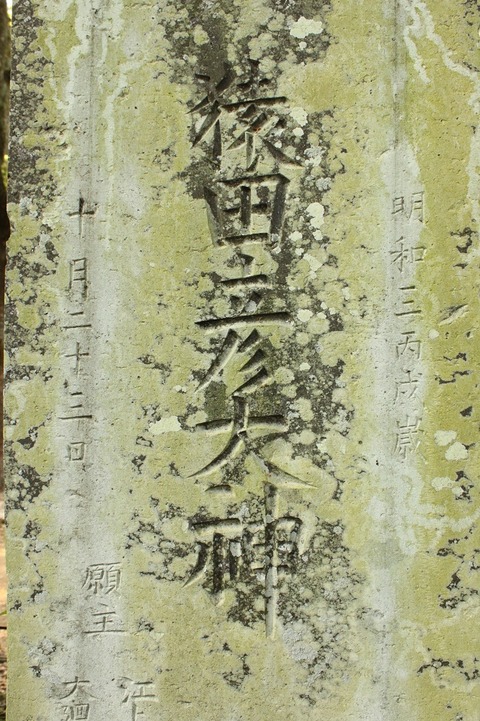 明和三丙戌歳
猿田彦大神
十月二十三日
願主
江
大廻